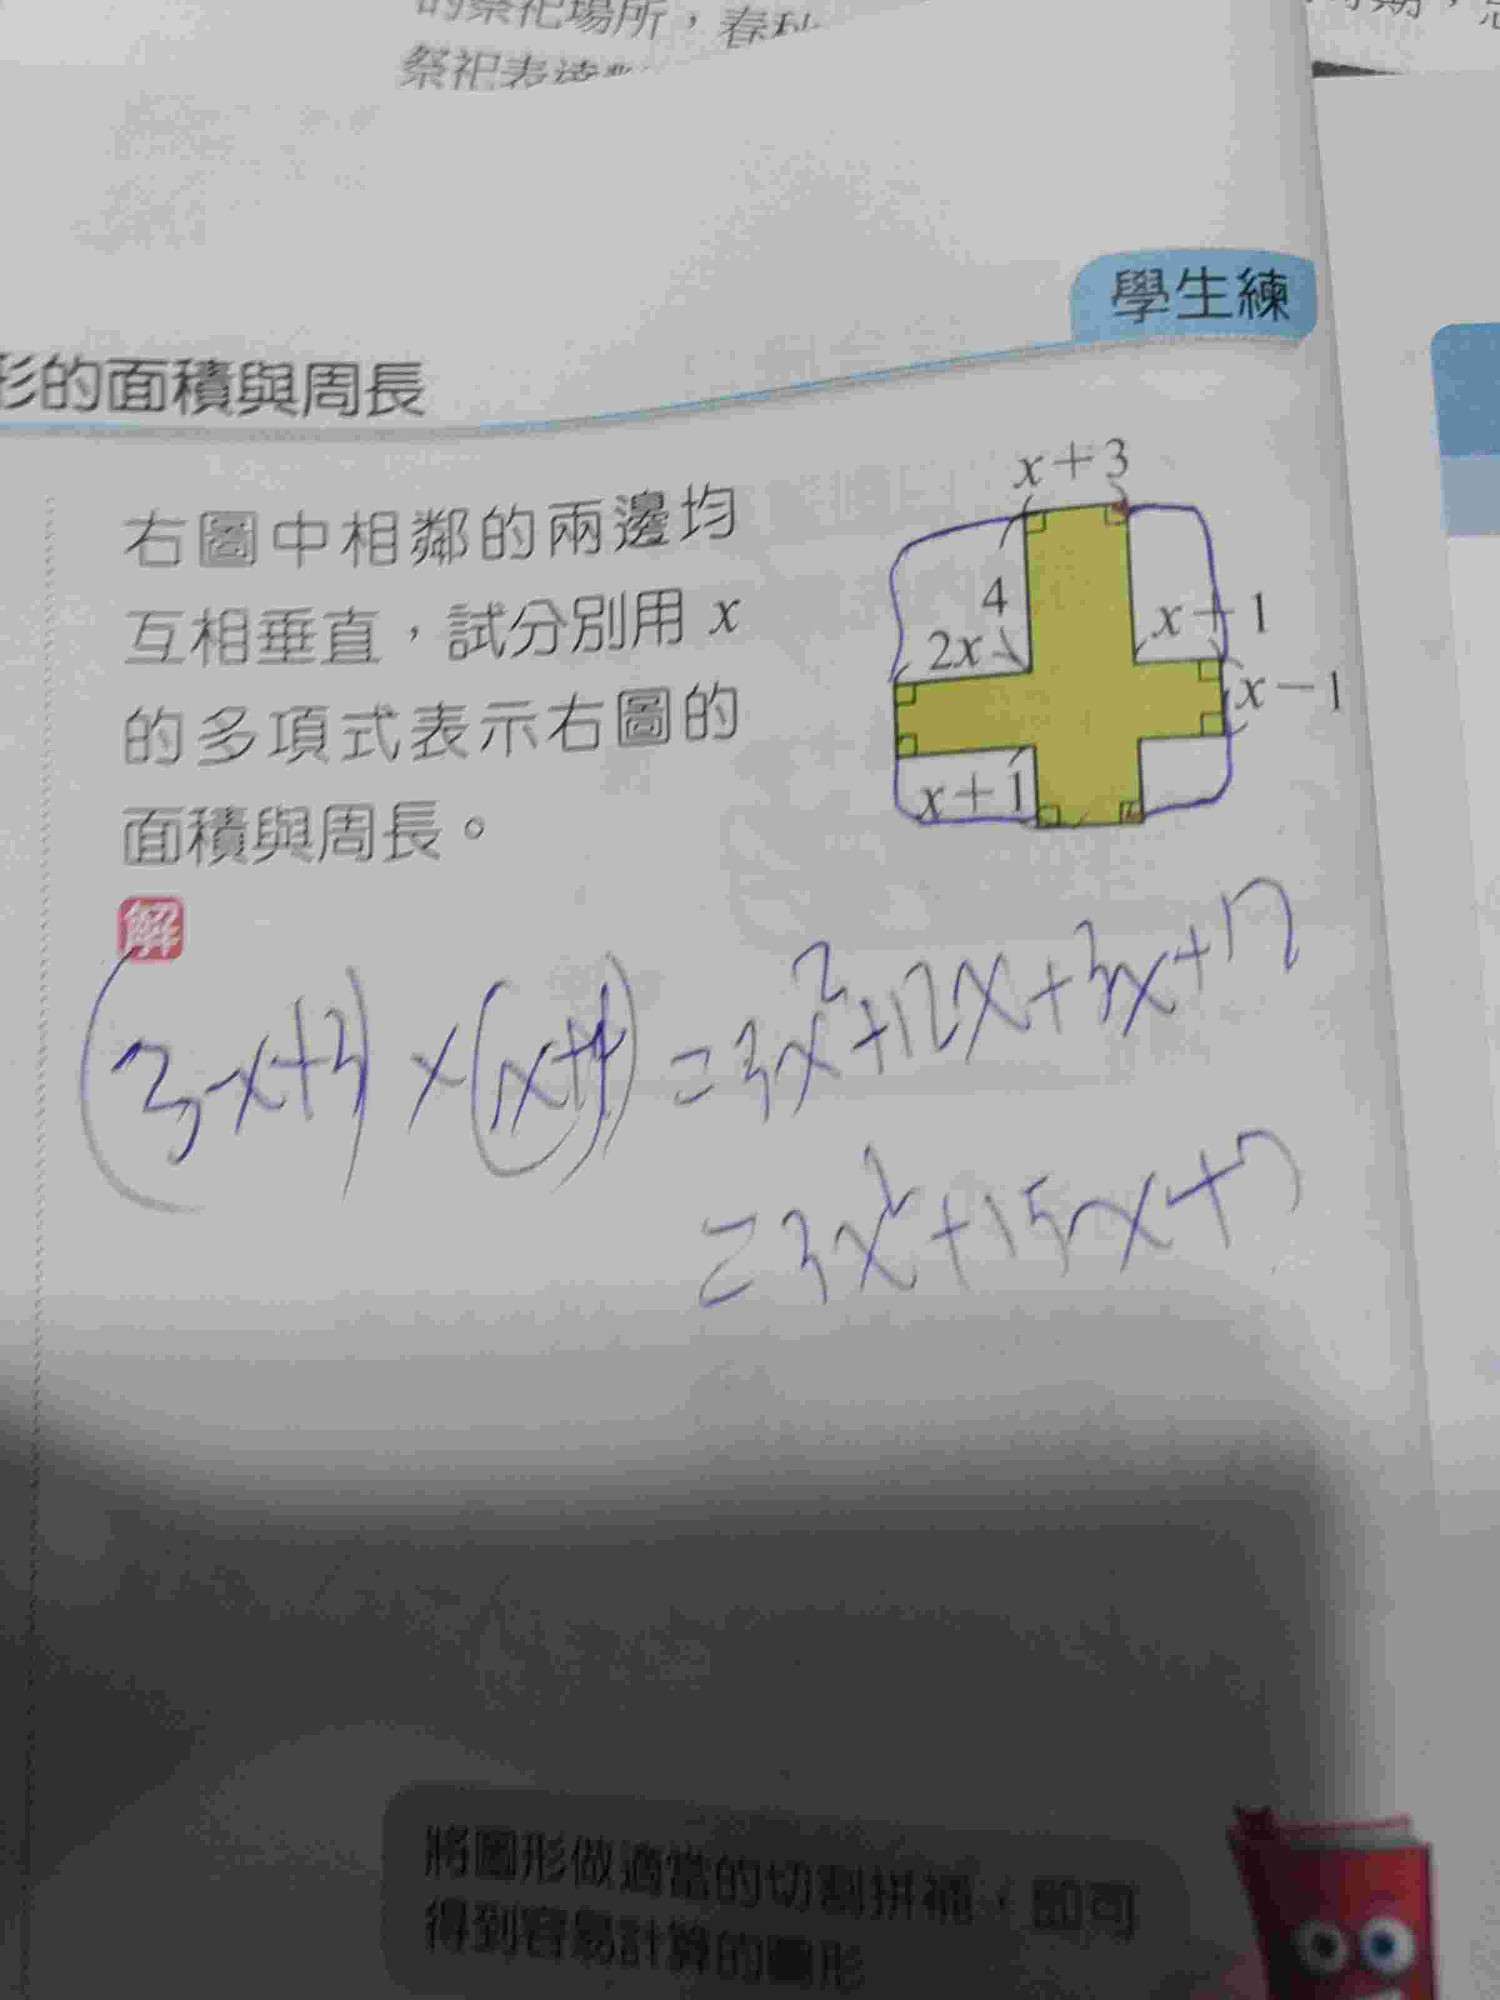 的祭祀場所，春秋
祭祀表達
學生練
形的面積與周長
右圖中相鄰的兩邊均
互相垂直，試分別用 x
的多項式表示右圖的
面積與周長。
x＋3
4
2x
x＋1
x－1
x＋1
解
(3x+3)×(x+4)=3x²+12x+3x+12
=3x²+15x+
將圖形做適當的切割拼補，即可
得到容易計算的圖形